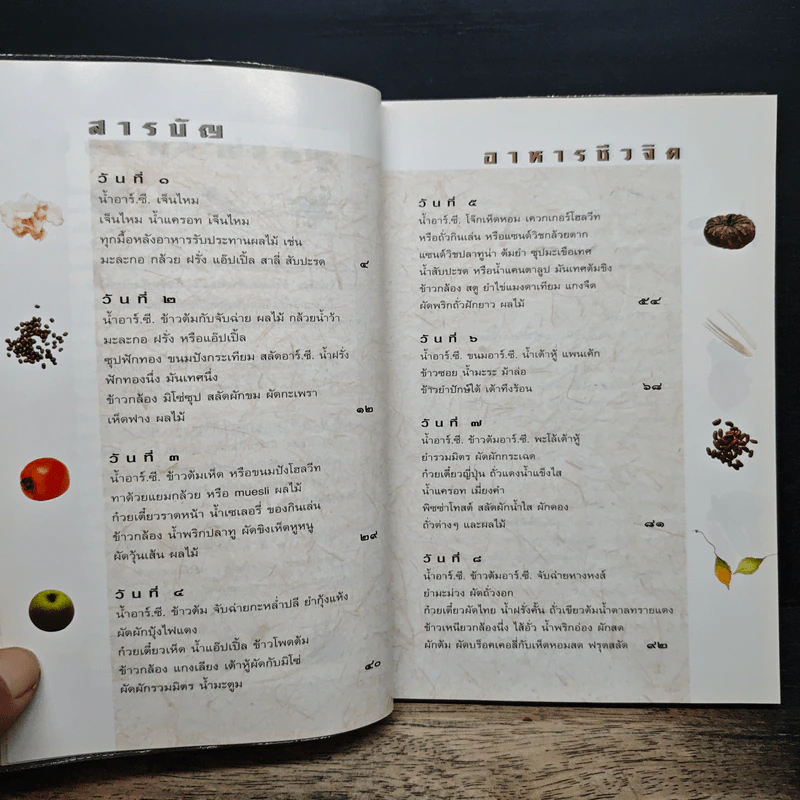 สารบัญ
วันที่ ๑
น้ำอาร์.ซี. เจ็นไหม
เจ็นไหม น้ำแครอท เจ็นไหม
ทุกมื้อหลังอาหารรับประทานผลไม้ เช่น
มะละกอ กล้วย ฝรั่ง แอ๊ปเปิ้ล สาลี่ สับปะรด ๔
วันที่ ๒
น้ำอาร์.ซี. ข้าวต้มกับจับฉ่าย ผลไม้ กล้วยน้ำว้า
มะละกอ ฝรั่ง หรือแอ๊ปเปิ้ล
ซุปฟักทอง ขนมปังกระเทียม สลัดอาร์.ซี. น้ำฝรั่ง
ฟักทองนึ่ง มันเทศนึ่ง
ข้าวกล้อง มิโซ่ซุป สลัดผักขม ผัดกะเพรา
เห็ดฟาง ผลไม้ ๑๒
วันที่ ๓
น้ำอาร์.ซี. ข้าวต้มเห็ด หรือขนมปังโฮลวีท
ทาด้วยแยมกล้วย หรือ muesli ผลไม้
ก๋วยเตี๋ยวราดหน้า น้ำเซเลอรี่ ของกินเล่น
ข้าวกล้อง น้ำพริกปลาทู ผัดขิงเห็ดหูหนู
ผัดวุ้นเส้น ผลไม้ ๒๙
วันที่ ๔
น้ำอาร์.ซี. ข้าวต้ม จับฉ่ายกะหล่ำปลี ยำกุ้งแห้ง
ผัดผักบุ้งไฟแดง
ก๋วยเตี๋ยวเห็ด น้ำแอ๊ปเปิ้ล ข้าวโพดต้ม
ข้าวกล้อง แกงเลียง เต้าหู้ผัดกับมิโซ่
ผัดผักรวมมิตร น้ำมะตูม ๔๐
อาหารชีวจิต
วันที่ ๕
น้ำอาร์.ซี. โจ๊กเห็ดหอม เควกเกอร์โฮลวีท
หรือถั่วกินเล่น หรือแซนด์วิชกล้วยตาก
แซนด์วิชปลาทูน่า ต้มยำ ซุปมะเขือเทศ
น้ำสับปะรด หรือน้ำแคนตาลูป มันเทศต้มขิง
ข้าวกล้อง สตู ยำไข่แมงดาเทียม แกงจืด
ผัดพริกถั่วฝักยาว ผลไม้ ๕๔
วันที่ ๖
น้ำอาร์.ซี. ขนมอาร์.ซี. น้ำเต้าหู้ แพนเค้ก
ข้าวซอย น้ำมะระ ม้าล่อ
ข้าวยำปักษ์ใต้ เต้าทึงร้อน ๖๘
วันที่ ๗
น้ำอาร์.ซี. ข้าวต้มอาร์.ซี. พะโล้เต้าหู้
ยำรวมมิตร ผัดผักกระเฉด
ก๋วยเตี๋ยวญี่ปุ่น ถั่วแดงน้ำแข็งไส
น้ำแครอท เมี่ยงคำ
พิซซ่าโทสต์ สลัดผักน้ำใส ผักดอง
ถั่วต่างๆ และผลไม้ ๘๑
วันที่ ๘
น้ำอาร์.ซี. ข้าวต้มอาร์.ซี. จับฉ่ายหางหงส์
ยำมะม่วง ผัดถั่วงอก
ก๋วยเตี๋ยวผัดไทย น้ำฝรั่งคั้น ถั่วเขียวต้มน้ำตาลทรายแดง
ข้าวเหนียวกล้องนึ่ง ไส้อั่ว น้ำพริกอ่อง ผักสด
ผักต้ม ผัดบร็อคเคอลี่กับเห็ดหอมสด ฟรุตสลัด ๙๒